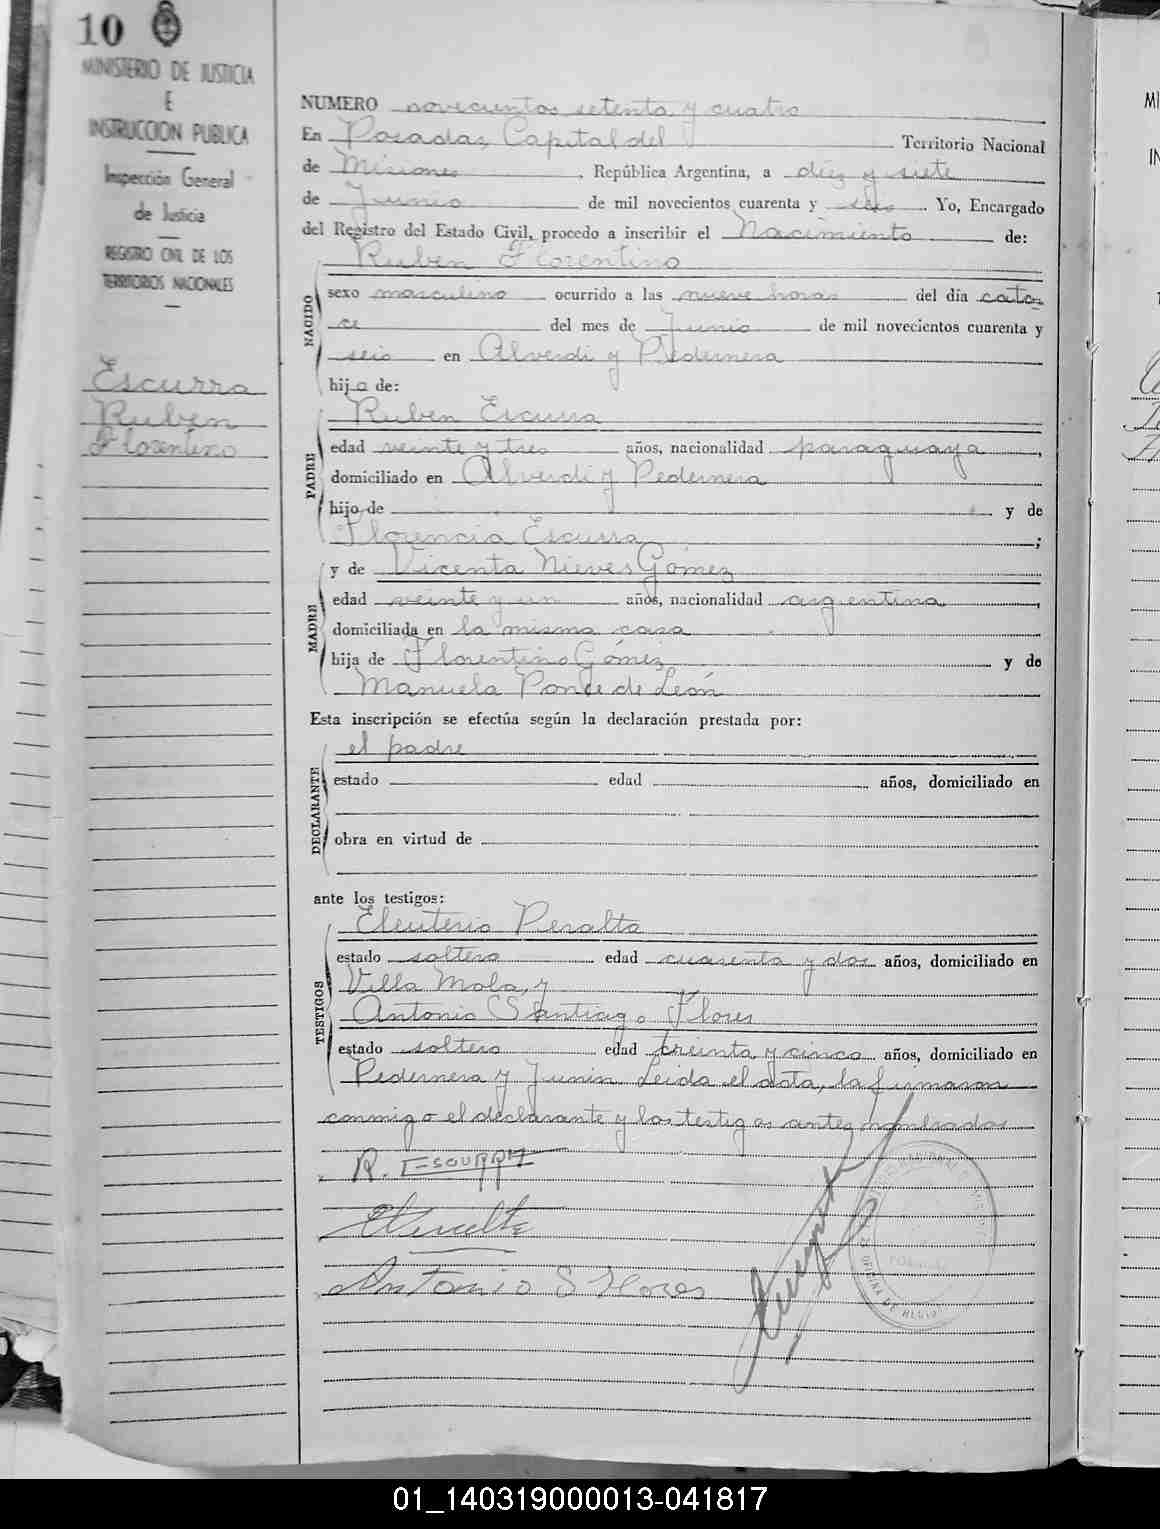 10
MINISTERIO DE JUSTICIA
E
INSTRUCCION PUBLICA
Inspección General
de Justicia
REGISTRO CIVIL DE LOS
TERRITORIOS NACIONALES
Escurra
Ruben
Florentino
NUMERO novecientos setenta y cuatro
En Posadas, Capital del Territorio Nacional
de Misiones, República Argentina, a diez y siete
de Junio de mil novecientos cuarenta y seis. Yo, Encargado
del Registro del Estado Civil, procedo a inscribir el Nacimiento de:
Ruben Florentino
NACIDO
sexo masculino ocurrido a las nueve horas del día cator-
ce del mes de Junio de mil novecientos cuarenta y
seis en Alverdi y Pedernera
hijo de:
Ruben Escurra
PADRE
edad veinte y tres años, nacionalidad paraguaya,
domiciliado en Alverdi y Pedernera
hijo de y de
Florencia Escurra;
y de Vicenta Nieves Gómez
MADRE
edad veinte y un años, nacionalidad argentina,
domiciliada en la misma casa
hija de Florentino Gómez y de
Manuela Ponce de León
Esta inscripción se efectúa según la declaración prestada por:
el padre
DECLARANTE
estado edad años, domiciliado en
obra en virtud de
ante los testigos:
Eleuterio Peralta
TESTIGOS
estado soltero edad cuarenta y dos años, domiciliado en
Villa Mola, y
Antonio Santiago Flores
estado soltero edad treinta y cinco años, domiciliado en
Pedernera y Junin Leida el acta, la firmaron
conmigo el declarante y los testigos antes nombrados
R. ESCURRA
Antonio S Flores
01_140319000013-041817